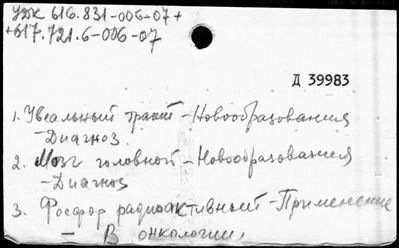 УДК 616.831-006-07+
+617.721.6-006-07
Д 39983
1. Увеальный тракт - Новообразования
- Диагноз
2. Мозг головной - Новообразования
- Диагноз
3. Фосфор радиоактивный - Применение
- В онкологии,